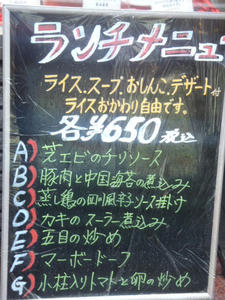 ランチメニュー
ライス、スープ、おしんこ、デザート付
ライスおかわり自由です。
各¥650税込
A) 芝エビのチリソース
B) 豚肉と中国海苔の煮込み
C) 蒸し鶏の四川風彩ソース掛け
D) カキのスーラー煮込み
E) 五目の炒め
F) マーボードーフ
G) 小柱入りトマトと卵の炒め